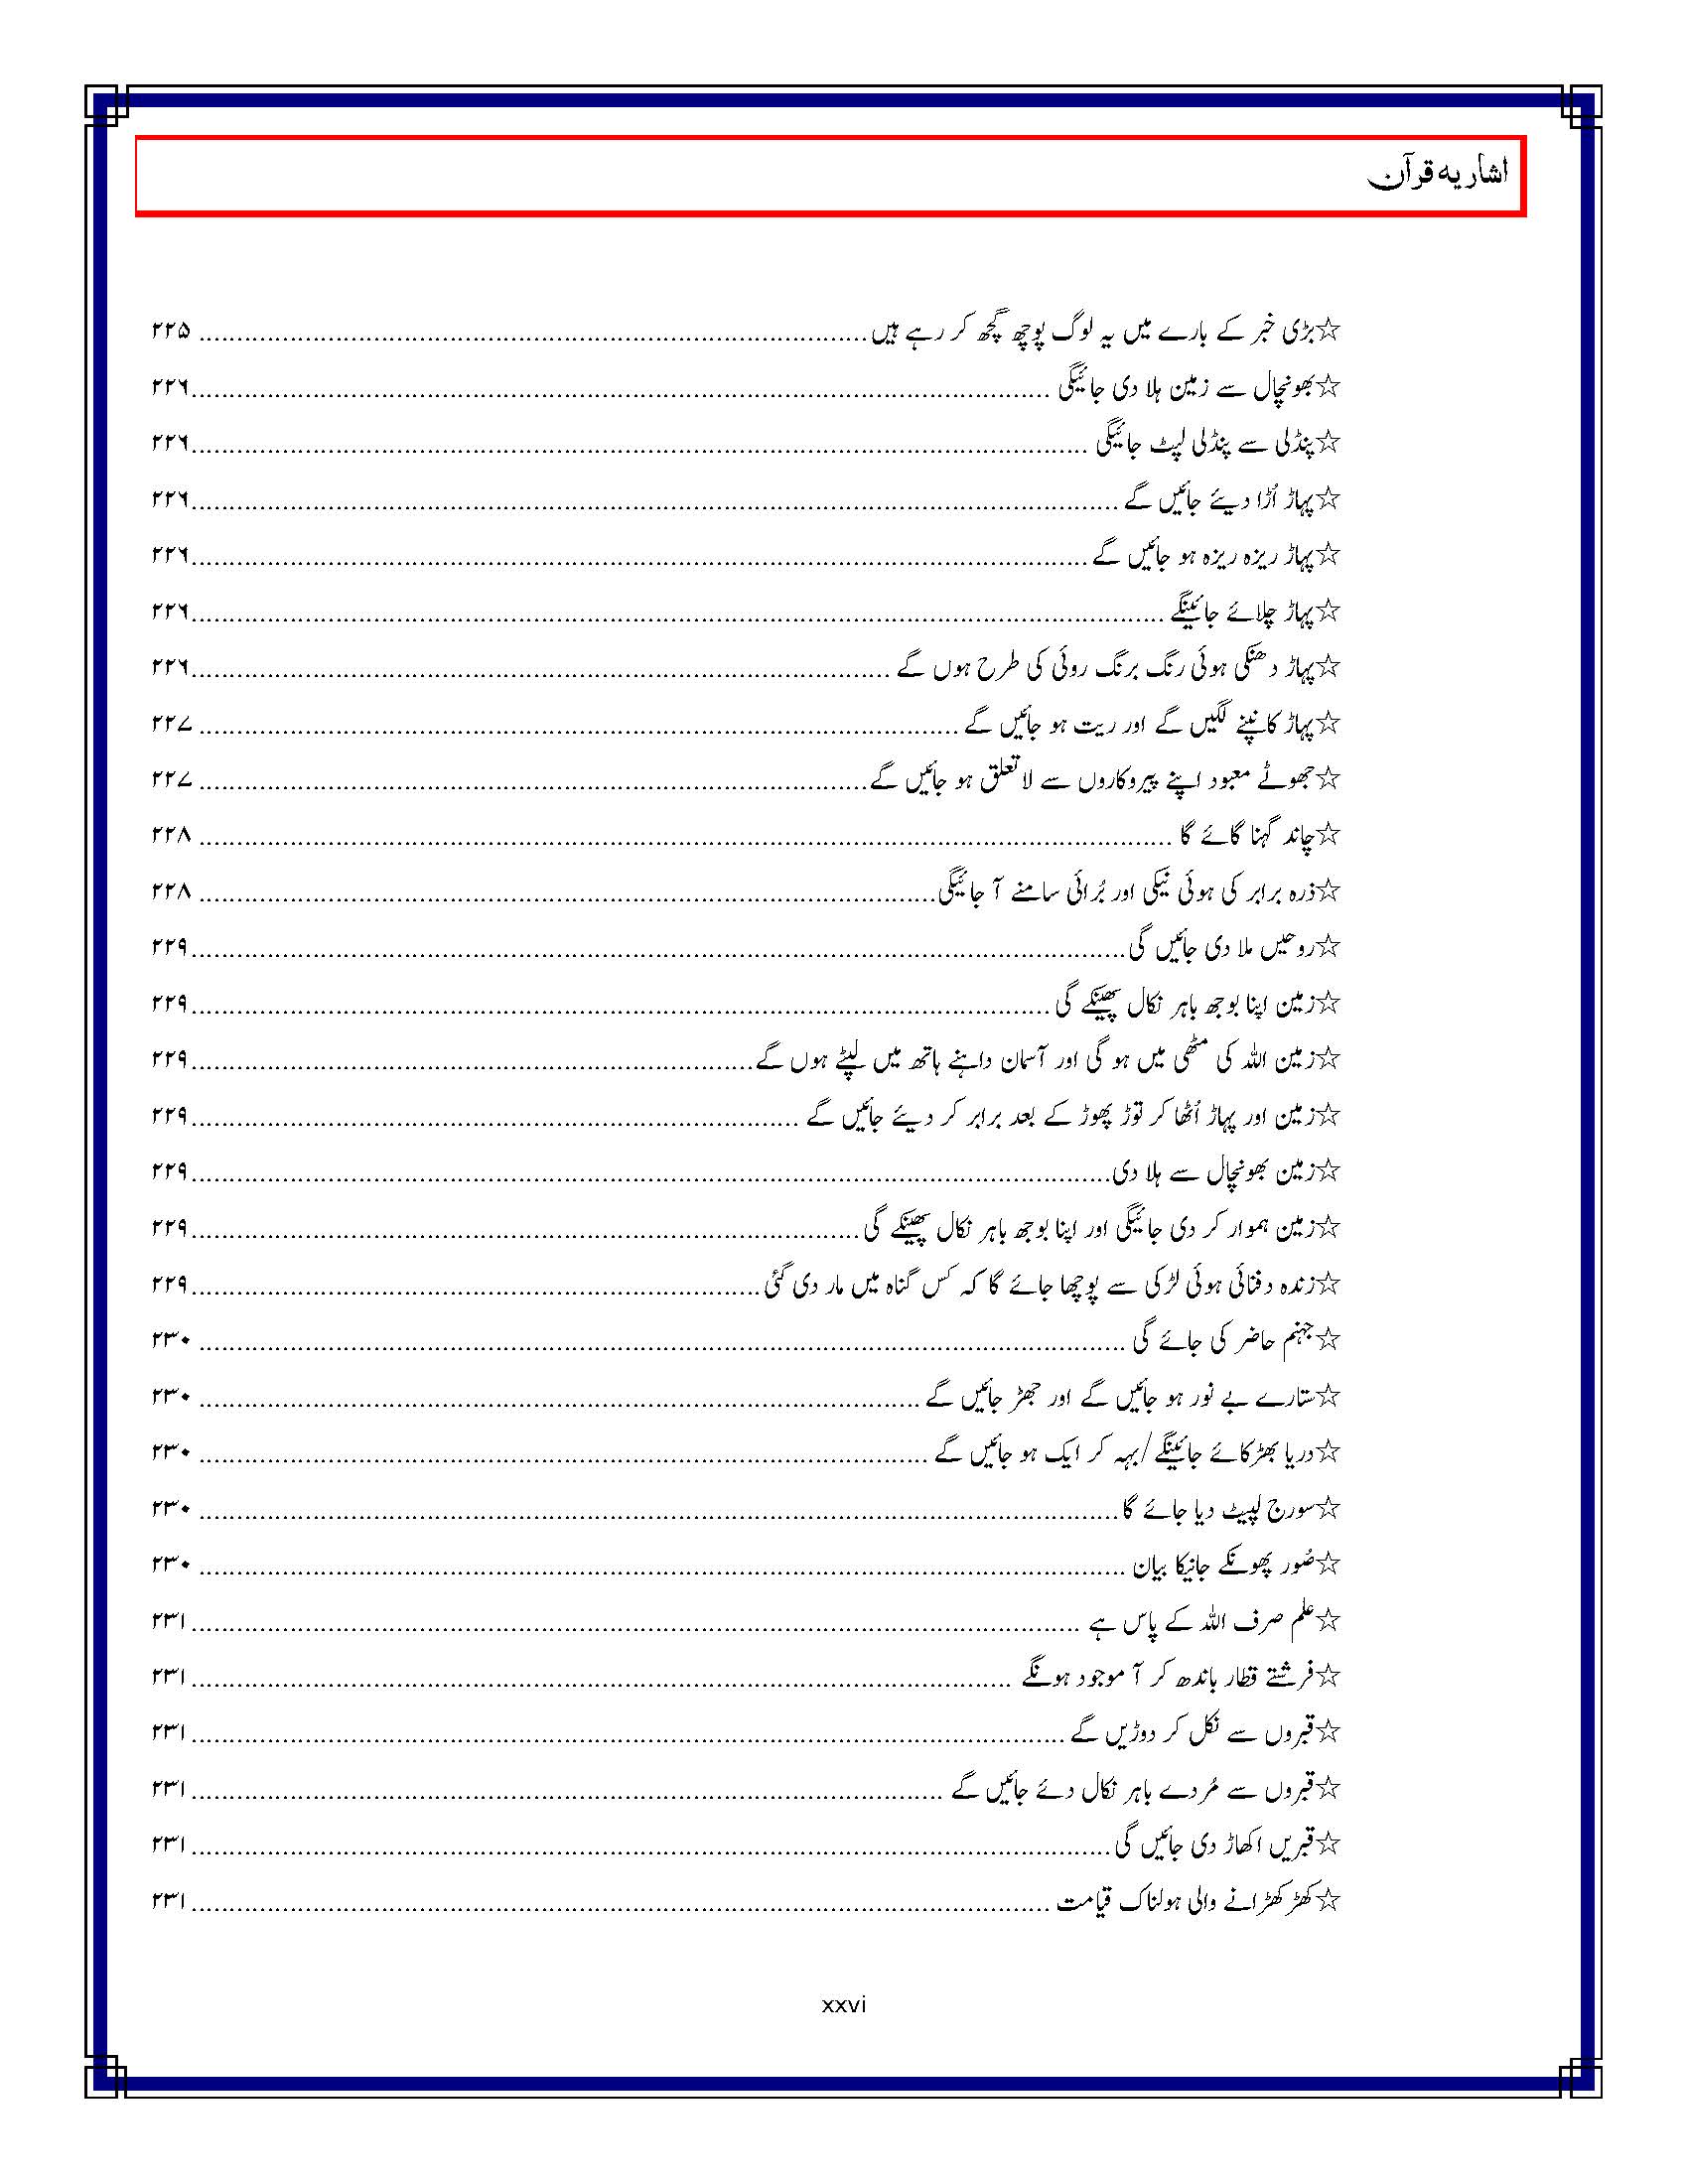 اشاریہ قرآن
☆بڑی خبر کے بارے میں یہ لوگ پوچھ گچھ کر رہے ہیں ۲۲۵
☆بھونچال سے زمین ہلا دی جائیگی ۲۲۶
☆پنڈلی سے پنڈلی لپٹ جائیگی ۲۲۶
☆پہاڑ اُڑا دیئے جائیں گے ۲۲۶
☆پہاڑ ریزہ ریزہ ہو جائیں گے ۲۲۶
☆پہاڑ چلائے جائینگے ۲۲۶
☆پہاڑ دھنکی ہوئی رنگ برنگ روئی کی طرح ہوں گے ۲۲۶
☆پہاڑ کانپنے لگیں گے اور ریت ہو جائیں گے ۲۲۷
☆جھوٹے معبود اپنے پیروکاروں سے لاتعلق ہو جائیں گے ۲۲۷
☆چاند گہنا گائے گا ۲۲۸
☆ذرہ برابر کی ہوئی نیکی اور بُرائی سامنے آ جائیگی ۲۲۸
☆روحیں ملا دی جائیں گی ۲۲۹
☆زمین اپنا بوجھ باہر نکال پھینکے گی ۲۲۹
☆زمین اللہ کی مٹھی میں ہو گی اور آسمان داہنے ہاتھ میں لپٹے ہوں گے ۲۲۹
☆زمین اور پہاڑ اُٹھا کر توڑ پھوڑ کے بعد برابر کر دیئے جائیں گے ۲۲۹
☆زمین بھونچال سے ہلا دی ۲۲۹
☆زمین ہموار کر دی جائیگی اور اپنا بوجھ باہر نکال پھینکے گی ۲۲۹
☆زندہ دفنائی ہوئی لڑکی سے پوچھا جائے گا کہ کس گناہ میں مار دی گئی ۲۲۹
☆جہنم حاضر کی جائے گی ۲۳۰
☆ستارے بے نور ہو جائیں گے اور جھڑ جائیں گے ۲۳۰
☆دریا بھڑکائے جائینگے/بہہ کر ایک ہو جائیں گے ۲۳۰
☆سورج لپیٹ دیا جائے گا ۲۳۰
☆صُور پھونکے جانیکا بیان ۲۳۰
☆علم صرف اللہ کے پاس ہے ۲۳۱
☆فرشتے قطار باندھ کر آ موجود ہونگے ۲۳۱
☆قبروں سے نکل کر دوڑیں گے ۲۳۱
☆قبروں سے مُردے باہر نکال دئے جائیں گے ۲۳۱
☆قبریں اکھاڑ دی جائیں گی ۲۳۱
☆کھڑ کھڑانے والی ہولناک قیامت ۲۳۱
xxvi